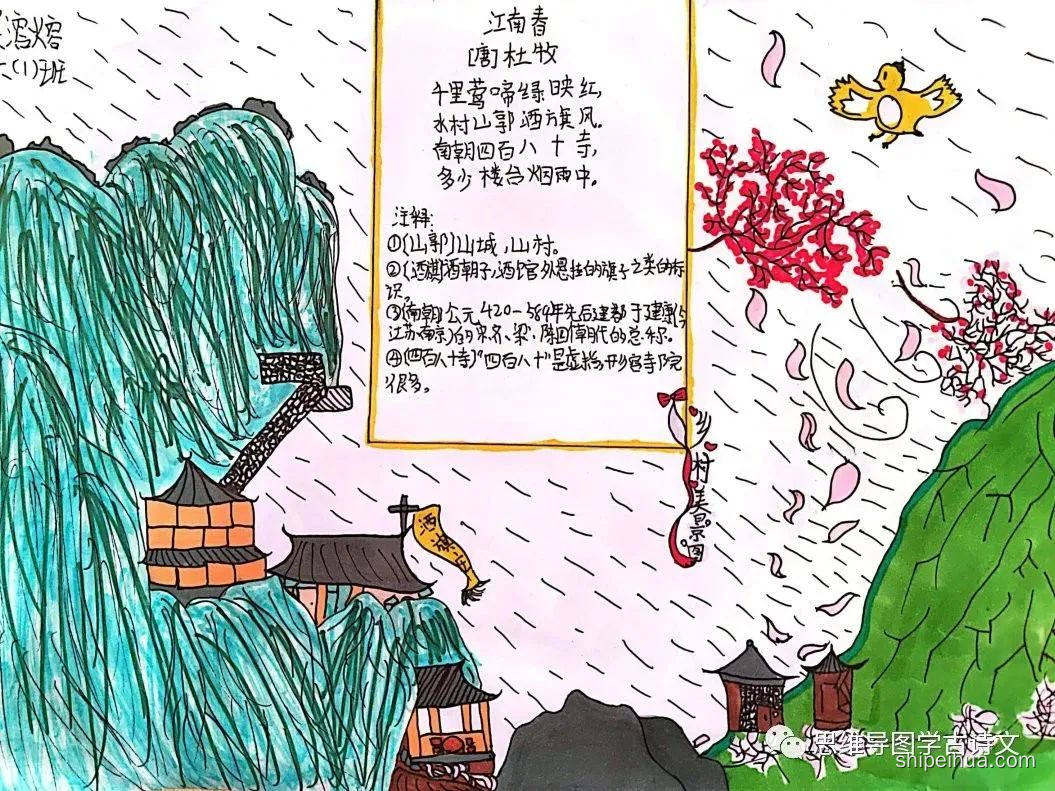 六(1)班
江南春
[唐]杜牧
千里莺啼绿映红,
水村山郭酒旗风.
南朝四百八十寺,
多少楼台烟雨中。
注释:
①(山郭)山城,山村。
②(酒旗)酒朝子,酒馆官外悬挂的旗子之类的标
识。
③(南朝)公元420-589年先后建都于建康(今
江苏南京)的宋、齐、梁、陈四朝代的总称.
④(四百八十寺)"四百八十"是虚指,形容寺院
很多。
乡村美景图
酒旗
思维导图学古诗文
shipeihua.com